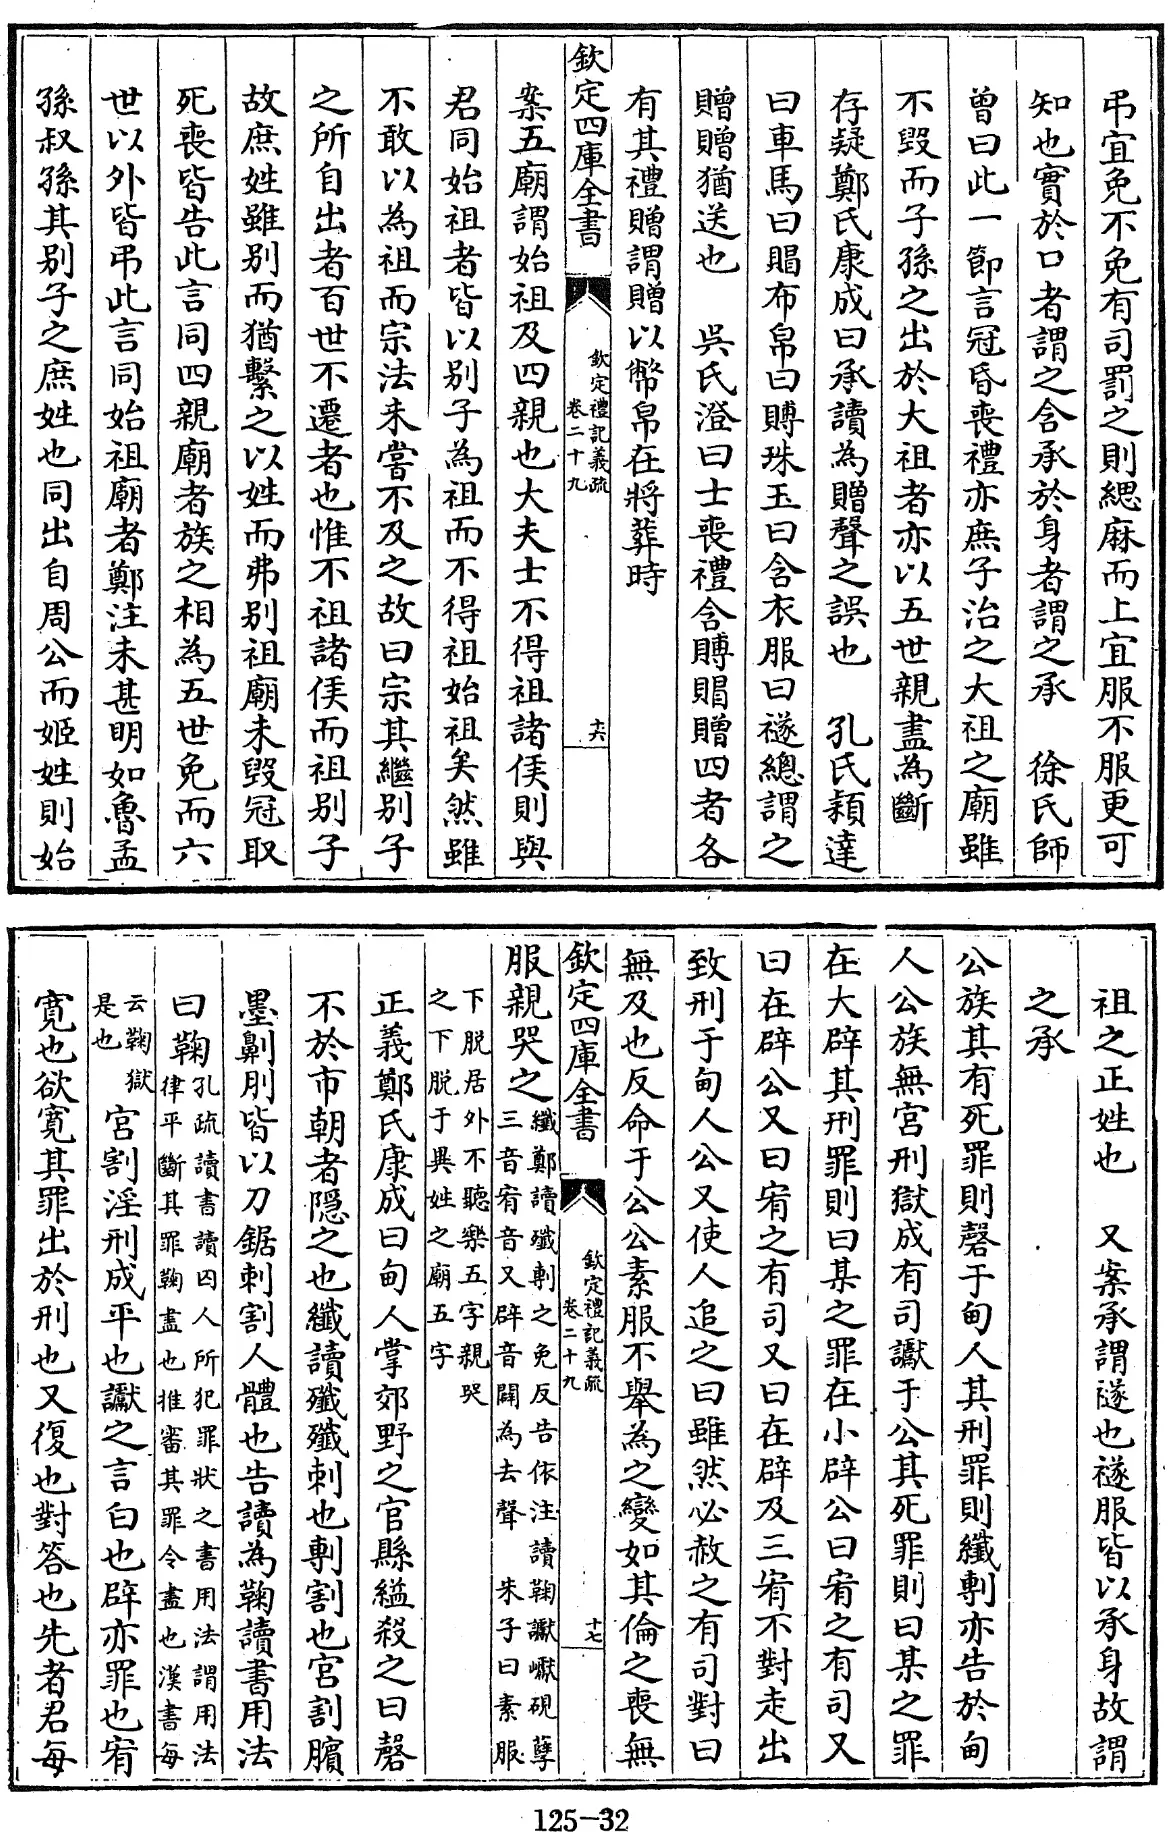 弔宜免不免有司罰之則緦麻而上宜服不服更可
知也實於口者謂之含承於身者謂之承　徐氏師
曾曰此一節言冠昏喪禮亦庶子治之大祖之廟雖
不毀而子孫之出於大祖者亦以五世親盡為斷
存疑鄭氏康成曰承讀為贈聲之誤也　孔氏穎達
曰車馬曰賵布帛曰賻珠玉曰含衣服曰襚總謂之
贈贈猶送也　吳氏澄曰士喪禮含賻賵贈四者各
有其禮贈謂贈以幣帛在將葬時
欽定四庫全書
欽定禮記義疏
卷二十九
十六
案五廟謂始祖及四親也大夫士不得祖諸侯則與
君同始祖者皆以别子為祖而不得祖始祖矣然雖
不敢以為祖而宗法未嘗不及之故曰宗其繼别子
之所自出者百世不遷者也惟不祖諸侯而祖别子
故庶姓雖别而猶繫之以姓而弗别祖廟未毀冠取
死喪皆告此言同四親廟者族之相為五世免而六
世以外皆弔此言同始祖廟者鄭注未甚明如魯孟
孫叔孫其别子之庶姓也同出自周公而姬姓則始
祖之正姓也　又案承謂襚也襚服皆以承身故謂
之承
公族其有死罪則磬于甸人其刑罪則纖剸亦告於甸
人公族無宮刑獄成有司讞于公其死罪則曰某之罪
在大辟其刑罪則曰某之罪在小辟公曰宥之有司又
曰在辟公又曰宥之有司又曰在辟及三宥不對走出
致刑于甸人公又使人追之曰雖然必赦之有司對曰
無及也反命于公公素服不舉為之變如其倫之喪無
欽定四庫全書
欽定禮記義疏
卷二十九
十七
服親哭之
纖鄭讀殲剸之免反告依注讀鞠讞巘硯孽
三音宥音又辟音闢為去聲　朱子曰素服
下脱居外不聽樂五字親哭
之下脱于異姓之廟五字
正義鄭氏康成曰甸人掌郊野之官縣縊殺之曰磬
不於市朝者隱之也纖讀殲殲刺也剸割也宮割臏
墨劓刖皆以刀鋸刺割人體也告讀為鞠讀書用法
曰鞠
孔疏讀書讀囚人所犯罪狀之書用法謂用法
律平斷其罪鞠盡也推審其罪令盡也漢書每
云鞠獄
是也
宮割淫刑成平也讞之言白也辟亦罪也宥
寬也欲寬其罪出於刑也又復也對答也先者君每
125-32